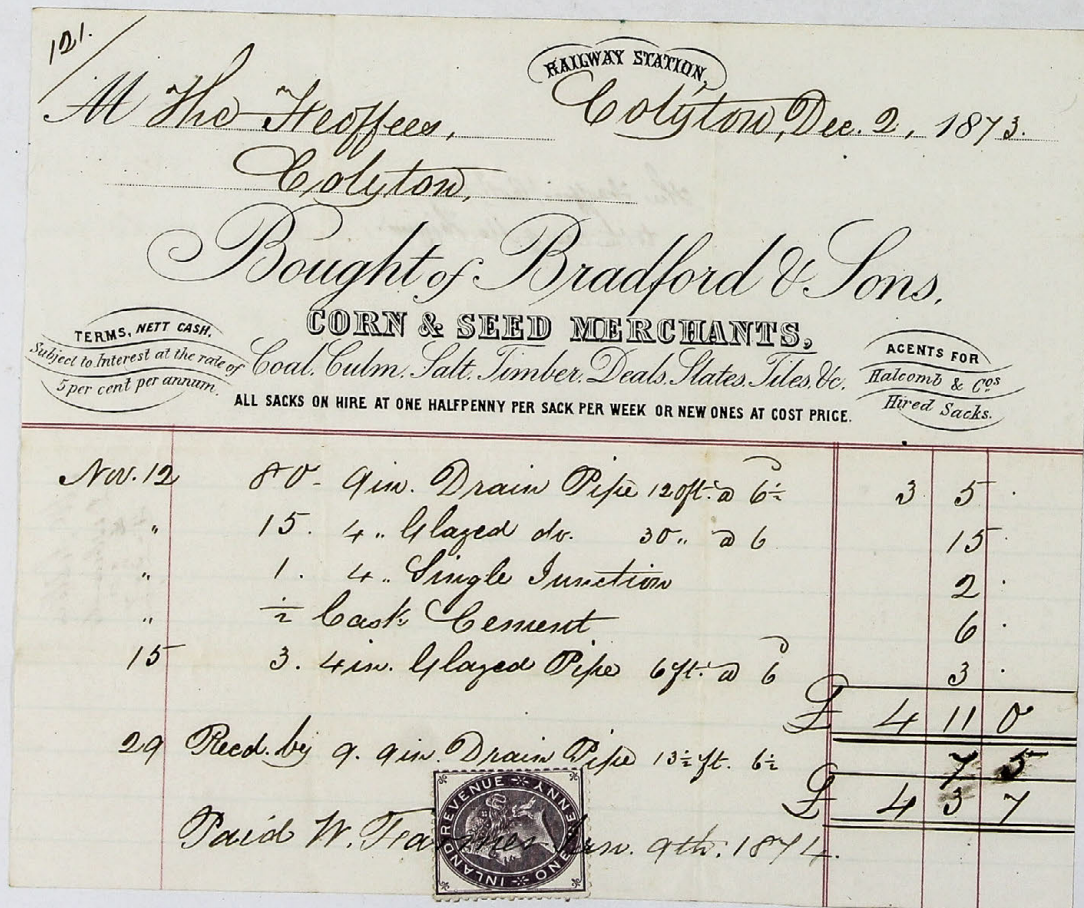 121.
RAILWAY STATION,
M The Feoffees, Colyton, Dec. 2, 1873.
Colyton,
Bought of Bradford & Sons,
CORN & SEED MERCHANTS,
Coal, Culm, Salt, Timber, Deals, Slates, Tiles, &c.
TERMS, NETT CASH.
Subject to Interest at the rate of
5 per cent per annum.
AGENTS FOR
Halcomb & Cos
Hired Sacks.
ALL SACKS ON HIRE AT ONE HALFPENNY PER SACK PER WEEK OR NEW ONES AT COST PRICE.
Nov. 12 80 - 9in. Drain Pipe 120ft. @ 6½ 3 5 .
" 15. 4 " Glazed do. 30 " @ 6 15 .
" 1. 4 " Single Junction 2 .
" ½ Cask Cement 6 .
15 3. 4in. Glazed Pipe 6ft. @ 6 3 .
£ 4 11 0
29 Recd. by 9. 9in. Drain Pipe 13½ft. 6½ 7 5
£ 4 3 7
Paid W. 9th. 1874.
INLAND REVENUE ONE PENNY